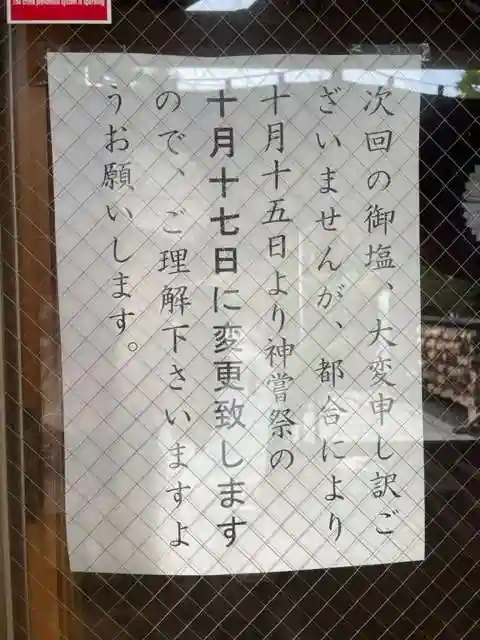 The crime prevention system is operating
次回の御塩、大変申し訳ご
ざいませんが、都合により
十月十五日より神嘗祭の
十月十七日に変更致します
ので、ご理解下さいますよ
うお願いします。